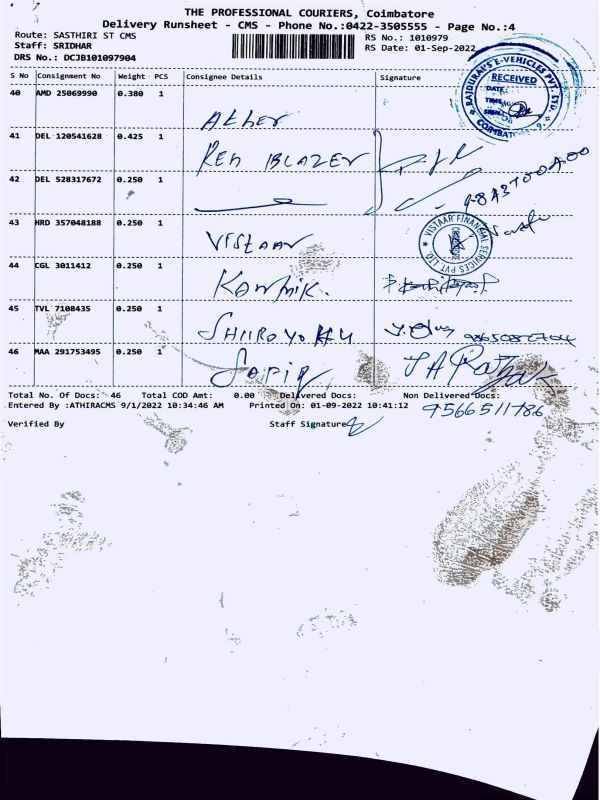 THE PROFESSIONAL COURIERS, Coimbatore
Delivery Runsheet - CMS - Phone No.:0422-3505555 - Page No.:4
Route: SASTHIRI ST CMS
Staff: SRIDHAR
DRS No.: DCJB101097904
RS No.: 1010979
RS Date: 01-Sep-2022
RAJDURAI'S E-VEHICLES PVT. LTD.
RECEIVED
DATE
TIME
SIGN
COIMBATORE
S No Consignment No Weight PCS Consignee Details Signature
40 AMD 25069990 0.380 1 Ather
41 DEL 120541628 0.425 1 Ren BLAZER
42 DEL 528317672 0.250 1
43 HRD 357048188 0.250 1 VISTAAR
VISTAAR FINANCIAL SERVICES PVT LTD.
44 CGL 3011412 0.250 1 Kowmik.
45 TVL 7108435 0.250 1
46 MAA 291753495 0.250 1
Total No. Of Docs: 46 Total COD Amt: 0.00 Delivered Docs: Non Delivered Docs:
9566511786
Entered By :ATHIRACMS 9/1/2022 10:34:46 AM Printed On: 01-09-2022 10:41:12
Verified By Staff Signature